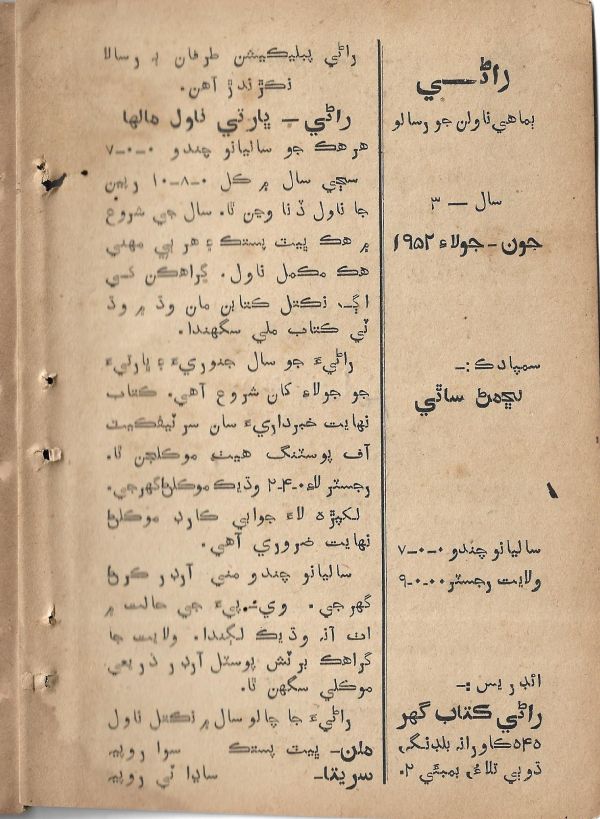 راڻي
ٻماهي ناولن جو رسالو
سال — ۳
جون - جولاءِ ۱۹۵۲
سمپادڪ :-
لڇمڻ ساٿي
ساليانو چندو ۰-۰-۷
ولايت رجسٽر ۰۰-۰-۹
ائڊريس :-
راڻي ڪتاب گهر
۵۴۵ ڪاورانہ بلڊنگ،
ڌوٻي تلاءُ، بمبئي ۲.
راڻي پبليڪيشن طرفان ٻہ رسالا
نڪرندڙ آهن.
راڻي – ڀارتي ناول مالها
هر هڪ جو ساليانو چندو ۰-۰-۷
سڄي سال ۾ ڪل ۰-۸-۱۰ رپين
جا ناول ڏنا وڃن ٿا. سال جي شروع
۾ هڪ ڀيٽ پستڪ ۽ هر ٻي مهني
هڪ مڪمل ناول. گراهڪن کي
اڳ ۾ نڪتل ڪتابن مان وڌ ۾ وڌ
ٽي ڪتاب ملي سگهندا.
راڻيءَ جو سال جنوريءَ ۽ ڀارتيءَ
جو جولاءِ کان شروع آهي. ڪتاب
نهايت خبرداريءَ سان سرٽيفڪيٽ
آف پوسٽنگ هيٺ موڪلجن ٿا.
رجسٽر لاءِ ۰-۴-۲ وڌيڪ موڪلڻ گهرجي.
لکپڙه لاءِ جوابي ڪارڊ موڪلڻ
نهايت ضروري آهي.
ساليانو چندو مني آرڊر ڪرڻ
گهرجي. وي. پيءَ جي حالت ۾
اٺ آنہ وڌيڪ لڳندا. ولايت جا
گراهڪ برٽش پوسٽل آرڊر ذريعي
موڪلي سگهن ٿا.
راڻيءَ جا چالو سال ۾ نڪتل ناول
ملن- ڀيٽ پستڪ سوا روپيہ
سريتا- ساڍا ٽي روپيہ